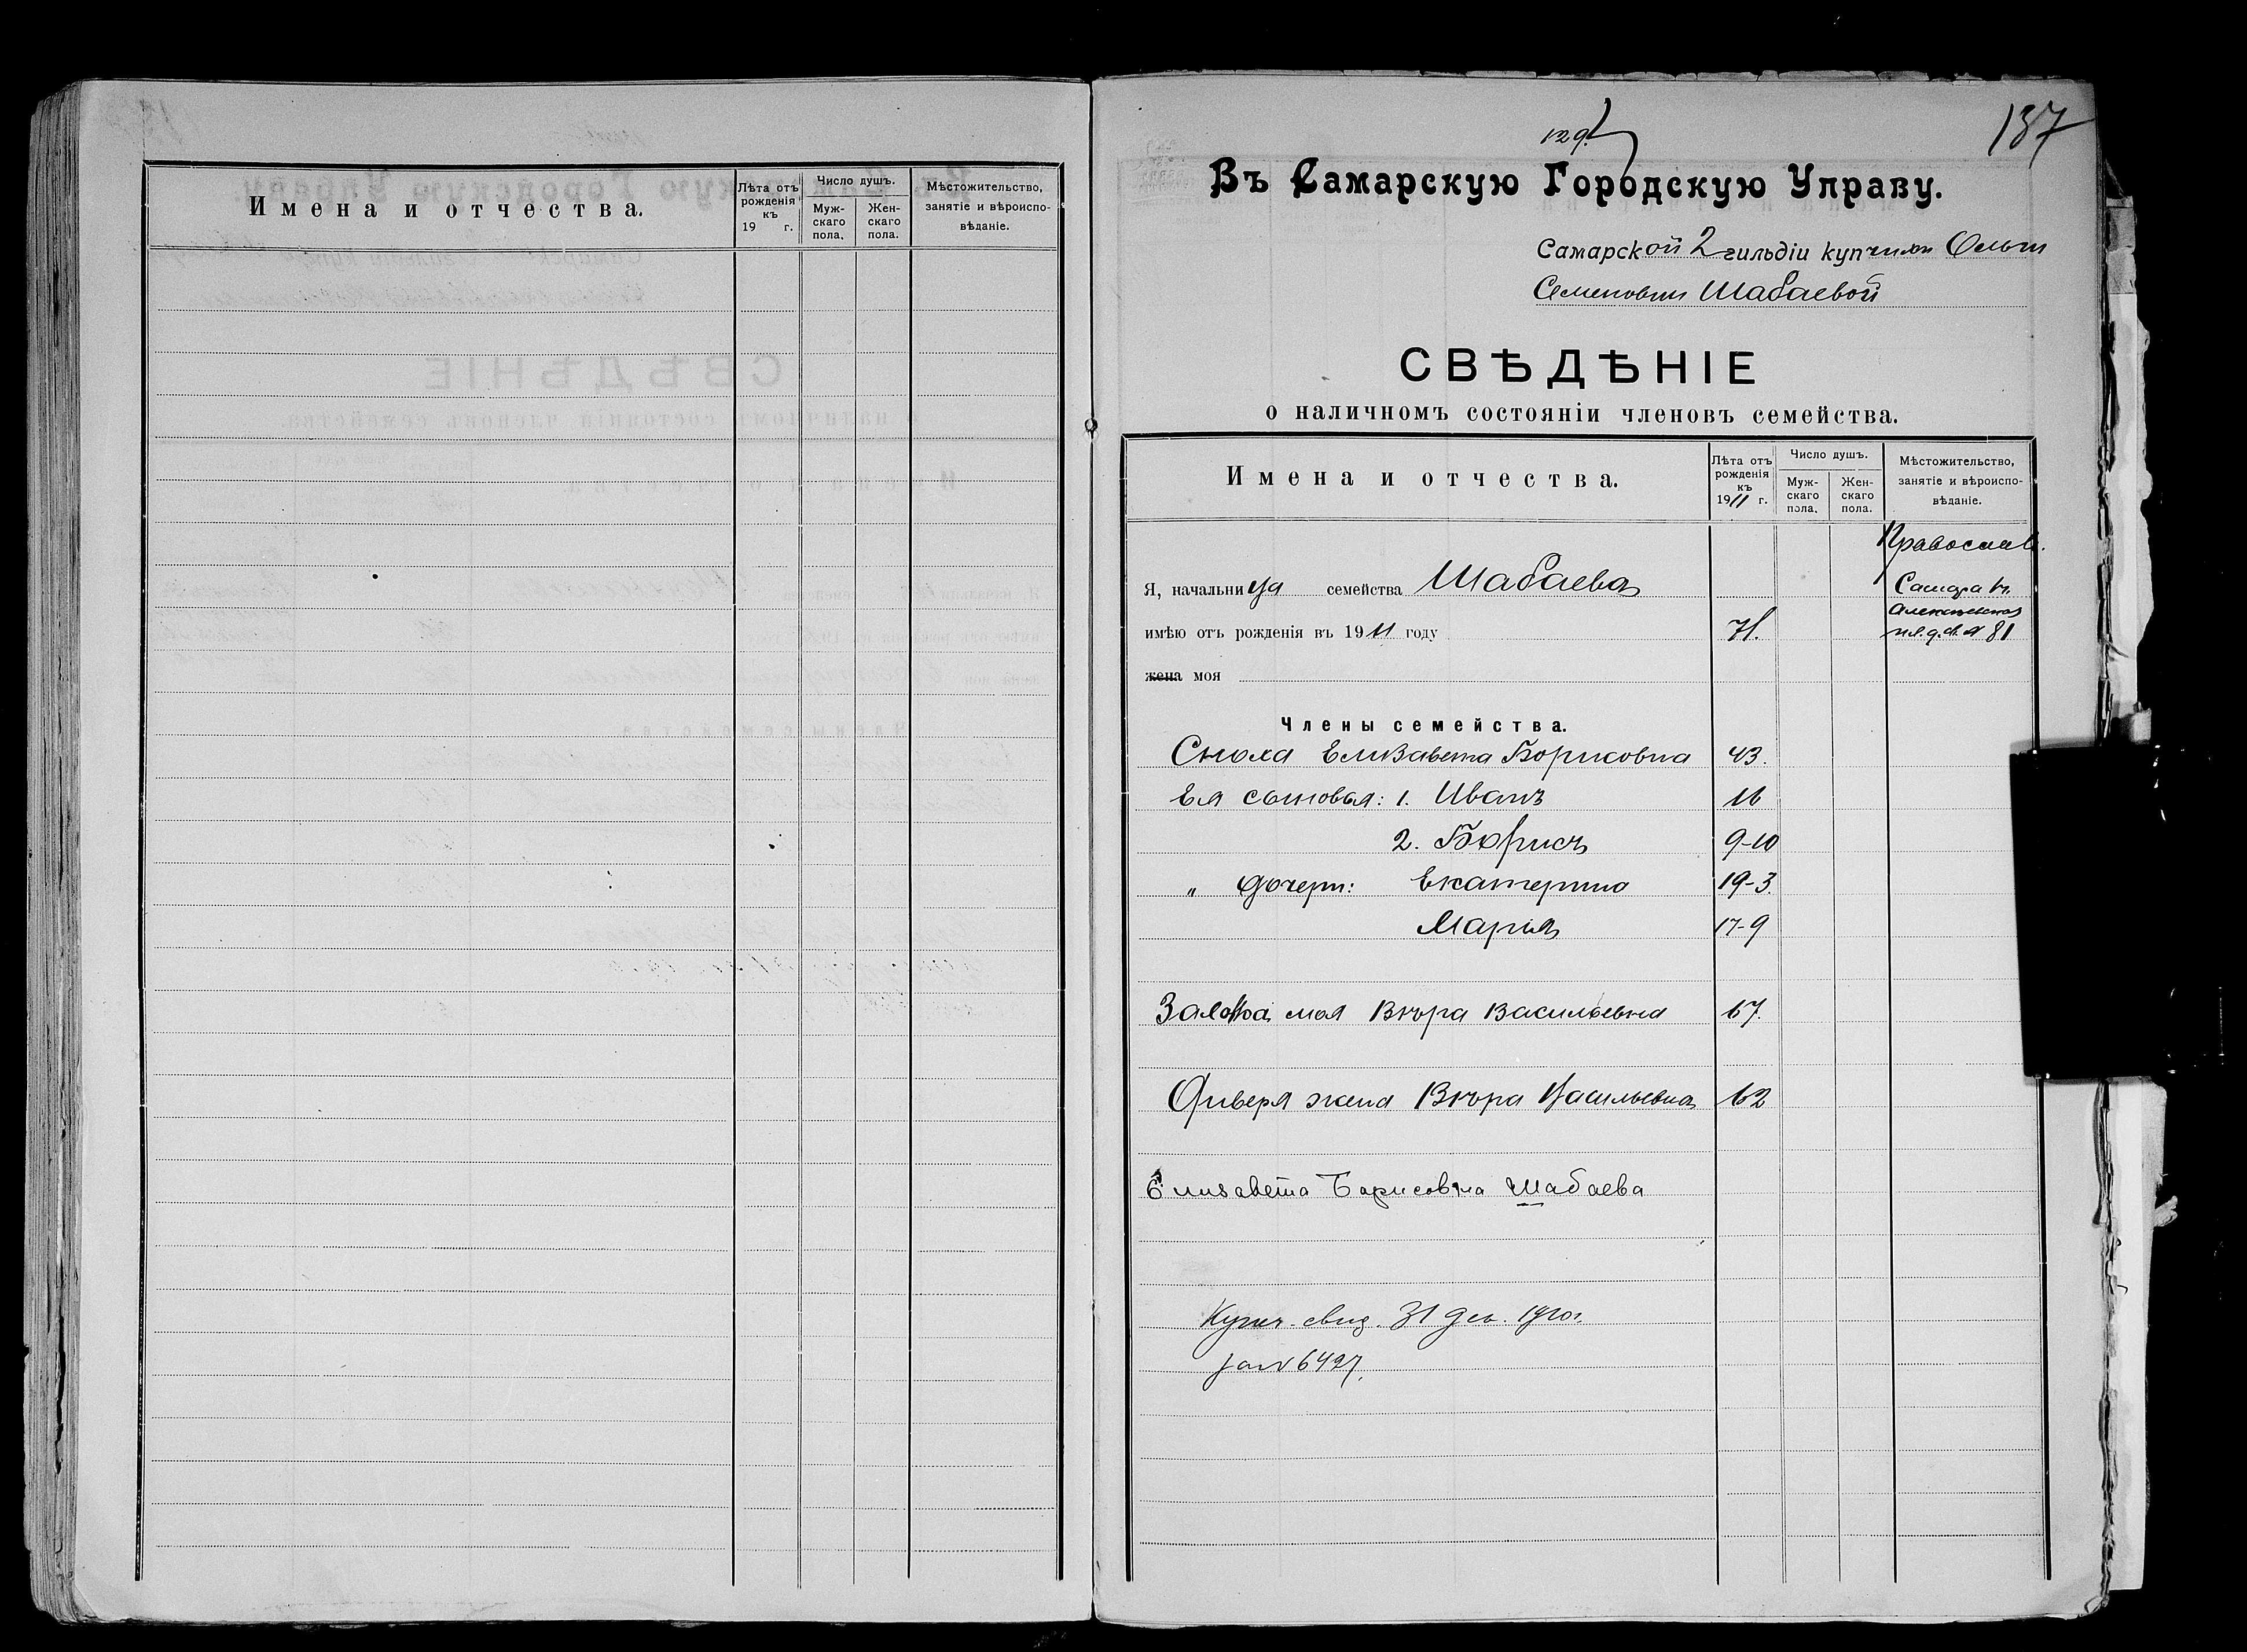 Имена и отчества.
Лѣта отъ рожденія къ 19 г.
Число душъ.
Муж-скаго пола.
Жен-скаго пола.
Мѣстожительство, занятіе и вѣроиспо-вѣданіе.
187
129.
Въ Самарскую Городскую Управу.
Самарской 2 гильдіи купчихи Ольги
Семеновны Шабаевой
СВѢДѢНІЕ
о наличномъ состояніи членовъ семейства.
Имена и отчества.
Лѣта отъ рожденія къ 1911 г.
Число душъ.
Муж-скаго пола.
Жен-скаго пола.
Мѣстожительство, занятіе и вѣроиспо-вѣданіе.
Православ.
Я, начальница семейства Шабаева
Самара
Алексѣевская
имѣю отъ рожденія въ 1911 году 71.
пл. д. № 81
жена моя
Члены семейства.
Сноха Елизавета Борисовна 43.
Ея сыновья: 1. Иванъ 16
2. Борисъ 9-10
" дочери: Екатерина 19-3.
Марія 17-9
Золовка моя Вѣра Васильевна 67.
Диверя жена Вѣра Васильевна 62
Елизавета Борисовна Шабаева
Купеч. свид. 31 дек. 1910г.
за № 6427.